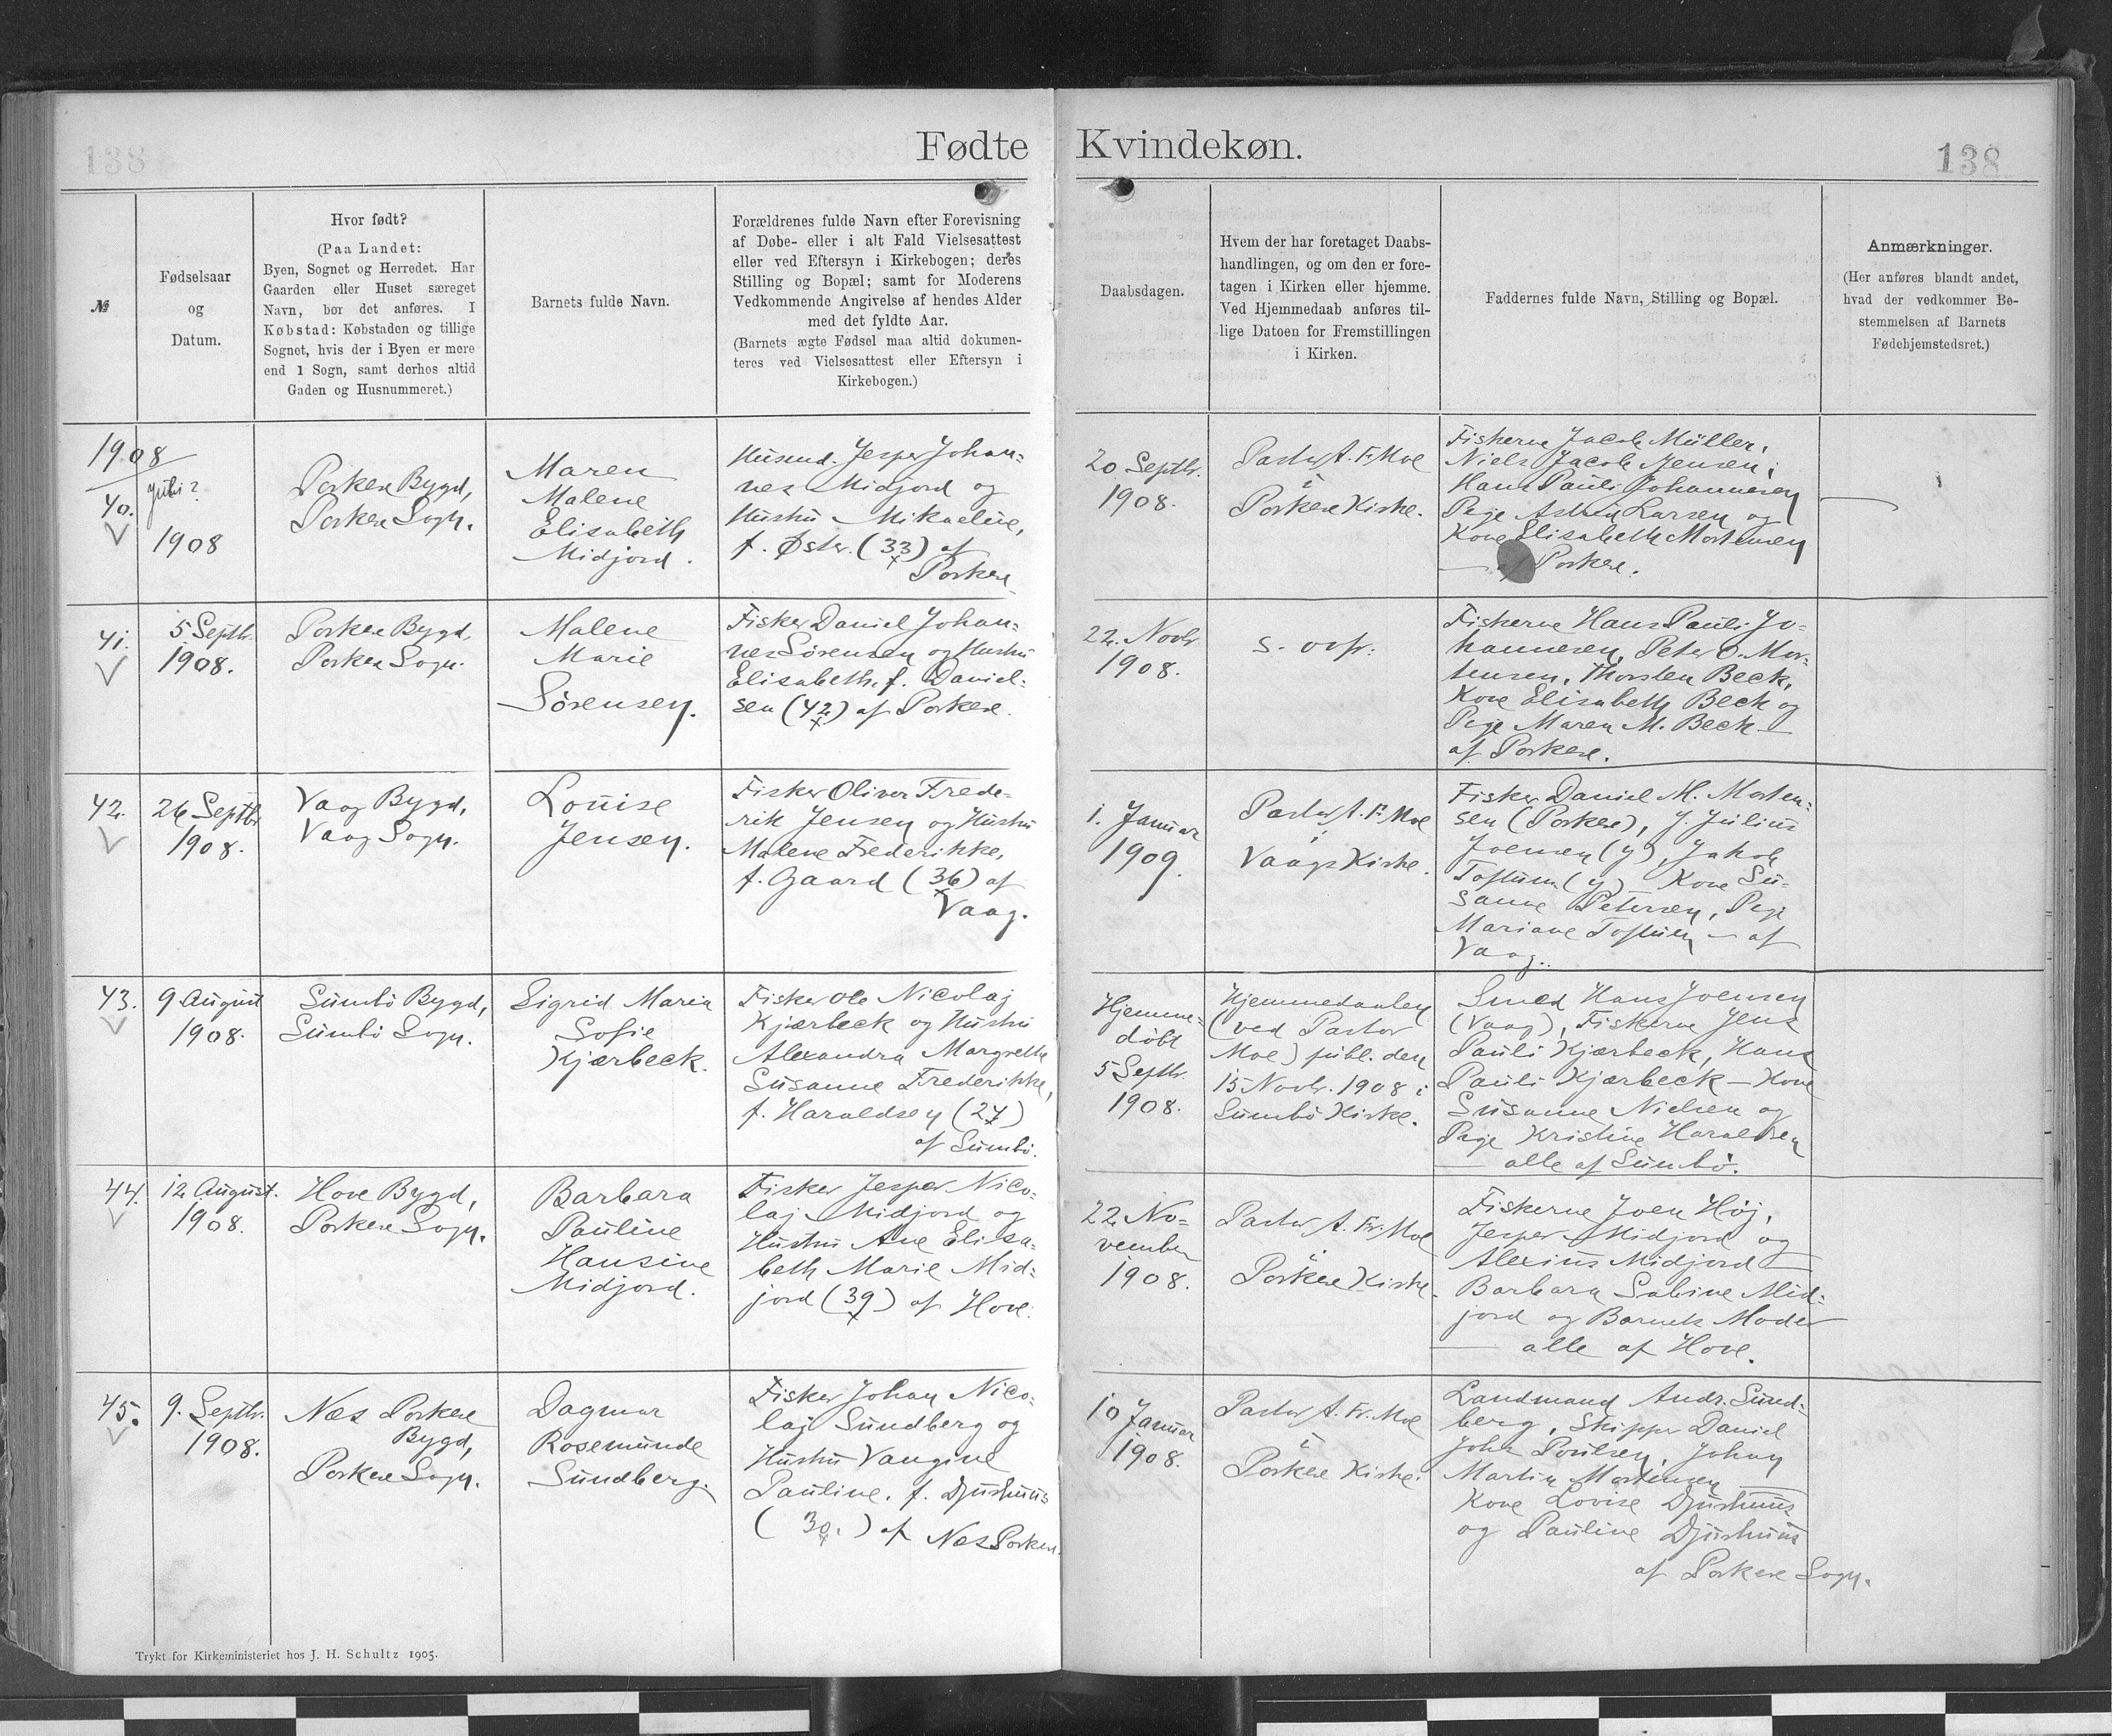 138
Fødte
Kvindekøn.
138
№
Fødselsaar
og
Datum.
Hvor født?
(Paa Landet:
Byen, Sognet og Herredet. Har
Gaarden eller Huset særeget
Navn, bør det anføres. I
Købstad: Købstaden og tillige
Sognet, hvis der i Byen er mere
end 1 Sogn, samt derhos altid
Gaden og Husnummeret.)
Barnets fulde Navn.
Forældrenes fulde Navn efter Forevisning
af Døbe- eller i alt Fald Vielsesattest
eller ved Eftersyn i Kirkebogen; deres
Stilling og Bopæl; samt for Moderens
Vedkommende Angivelse af hendes Alder
med det fyldte Aar.
(Barnets ægte Fødsel maa altid dokumen-
teres ved Vielsesattest eller Eftersyn i
Kirkebogen.)
Daabsdagen.
Hvem der har foretaget Daabs-
handlingen, og om den er fore-
tagen i Kirken eller hjemme.
Ved Hjemmedaab anføres til-
lige Datoen for Fremstillingen
i Kirken.
Faddernes fulde Navn, Stilling og Bopæl.
Anmærkninger.
(Her anføres blandt andet,
hvad der vedkommer Be-
stemmelsen af Barnets
Fødehjemstedsret.)
1908
40.
Juli?
1908
Porkere Bygd,
Porkere Sogn.
Maren
Malene
Elisabeth
Midjord.
Husmd. Jesper Johan-
nes Midjord og
Hustru Mikaeline,
f. Øster. (33) af
Porkere
20 Septbr.
1908.
Pastor A. F. Moe
i
Porkere Kirke.
Fiskerne Jacob Müller,
Niels Jacob Jensen,
Hans Pauli Johannesen
Pige Astrid Larsen og
Kone Elisabeth Mortensen
— af Porkere.
41.
5 Septb.
1908.
Porkere Bygd,
Porkere Sogn.
Malene
Marie
Sørensen.
Fisker Daniel Johan-
nes Sørensen og Hustru
Elisabeth, f. Daniel-
sen (42) af Porkere.
22. Novbr
1908.
s. ovf.
Fiskerne Hans Pauli Jo-
hannesen, Peter O. Mor-
tensen, Thorsten Beck,
Kone Elisabeth Beck og
Pige Maren M. Beck —
af Porkere.
42.
26 Septbr
1908.
Vaag Bygd,
Vaag Sogn.
Louise
Jensen.
Fisker Oliver Frede-
rik Jensen og Hustru
Malene Frederikke,
f. Gaard (36) af
Vaag.
1. Januar
1909.
Pastor A. F. Moe
i
Vaags Kirke.
Fisker Daniel M. Morten-
sen (Porkere), J. Julius
Joensen (y), Jakob
(y) — Kone Su-
sanne Petersen, Pige
Mariane — af
Vaag.
43.
9 August
1908.
Sumbø Bygd,
Sumbø Sogn.
Sigrid Maria
Sofie
Kjærbeck.
Fisker Ole Nicolaj
Kjærbeck og Hustru
Alexandra Margrethe
Susanne Frederikke,
f. Haraldsen (27)
af Sumbø.
Hjemme-
døbt
5 Septbr.
1908.
Hjemmedaaben
(ved Pastor
Moe) publ. den
15 Novbr. 1908 i
Sumbø Kirke.
Smed Hans Joensen
(Vaag), Fiskerne Jens
Pauli Kjærbeck, Hans
Pauli Kjærbeck — Kone
Susanne Nielsen og
Pige Kristine Haraldsen
— alle af Sumbø.
44.
12 August.
1908.
Hove Bygd,
Porkere Sogn.
Barbara
Pauline
Hansine
Midjord.
Fisker Jesper Nico-
laj Midjord og
Hustru Ane Elisa-
beth Marie Mid-
jord (39) af Hove.
22. No-
vember
1908.
Pastor A. Fr. Moe
i
Porkere Kirke.
Fiskerne Joen Høj,
Jesper Midjord og
Alexius Midjord —
Barbara Sabine Mid-
jord og Barnets Moder
— alle af Hove.
45.
9. Septbr.
1908.
Næs Porkere
Bygd,
Porkere Sogn.
Dagmar
Rosemunde
Sundberg.
Fisker Johan Nico-
laj Sundberg og
Hustru Vangine
Pauline, f. Djurhuus
(30.) af Næs Porkere.
10 Januar
1908.
Pastor A. Fr. Moe
i
Porkere Kirke.
Landmand Andr. Sund-
berg, Skipper Daniel
Johs Poulsen, Johan
Martin Mortensen —
Kone Lovise Djurhuus
og Pauline Djurhuus
af Porkere Sogn.
Trykt for Kirkeministeriet hos J. H. Schultz 1905.